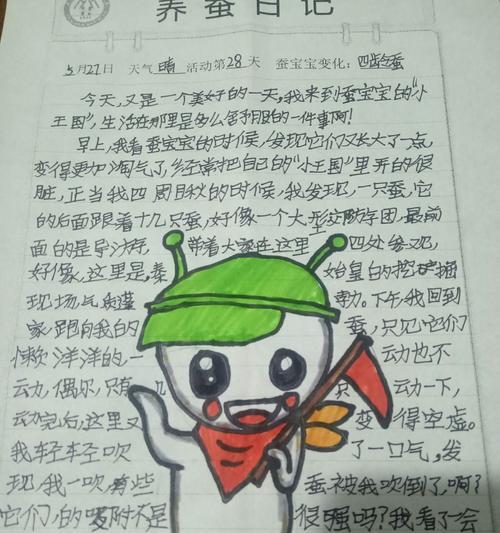 养蚕日记
5月27日 天气 晴 活动第28天 蚕宝宝变化: 四龄蚕
今天,又是一个美好的一天,我来到蚕宝宝的“小
王国”,生活在那里是多么舒服的一件事啊!
早上,我看蚕宝宝的时候,发现它们又长大了一点,
变得更加淘气了,经常把自己的“小王国”里弄的很
脏,正当我四周目秋的时候,我发现,一只蚕,它
的后面跟着十几只蚕,好像一个大型旅游团,最前
面的是导游 带着大家在这里 四处参观,
好像,这里是,秦 始皇的挖掘
现场气 下午,我回到
家,跑向我的 蚕,只见它们
懒洋洋的,一 动也不
动,偶尔,只有几 只 动一下,
动完后,这里又 变得空虚。
我轻轻吹 了一口气,发
现,我一吹,有些 蚕被我吹倒了,啊?
它们,的吸附不是 很强吗?我看了一会